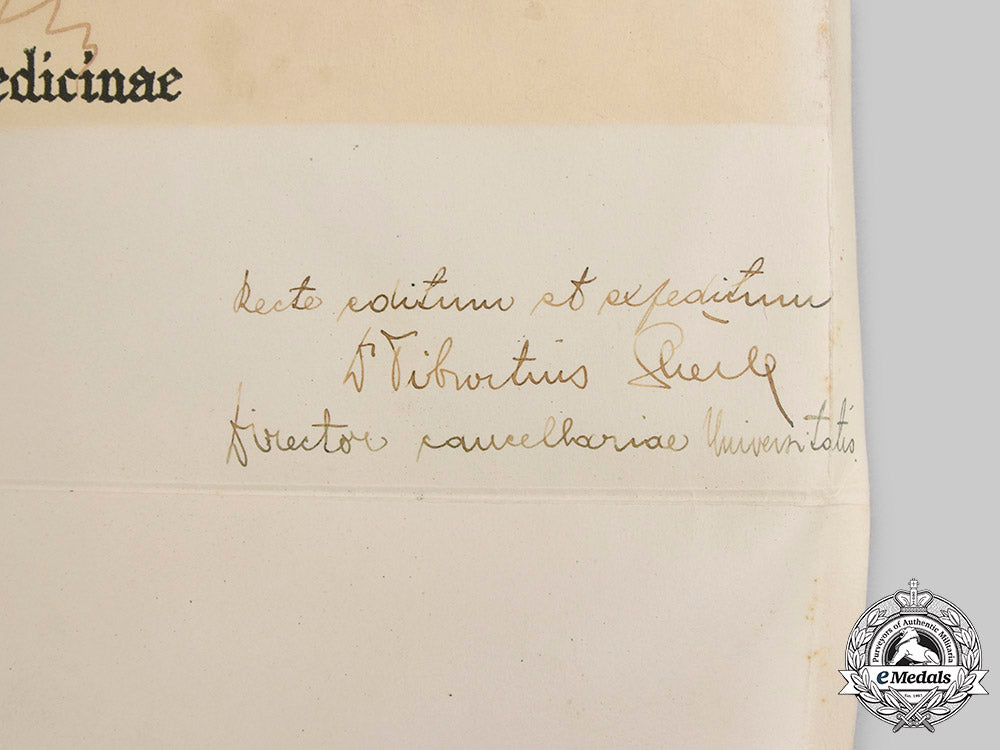 edicinae
Recte editum et expeditum
Dr Tiburtius
Director cancellariae Universitatis
Purveyors of Authentic Militaria
eMedals